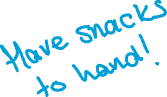 Have snacks
to hand!